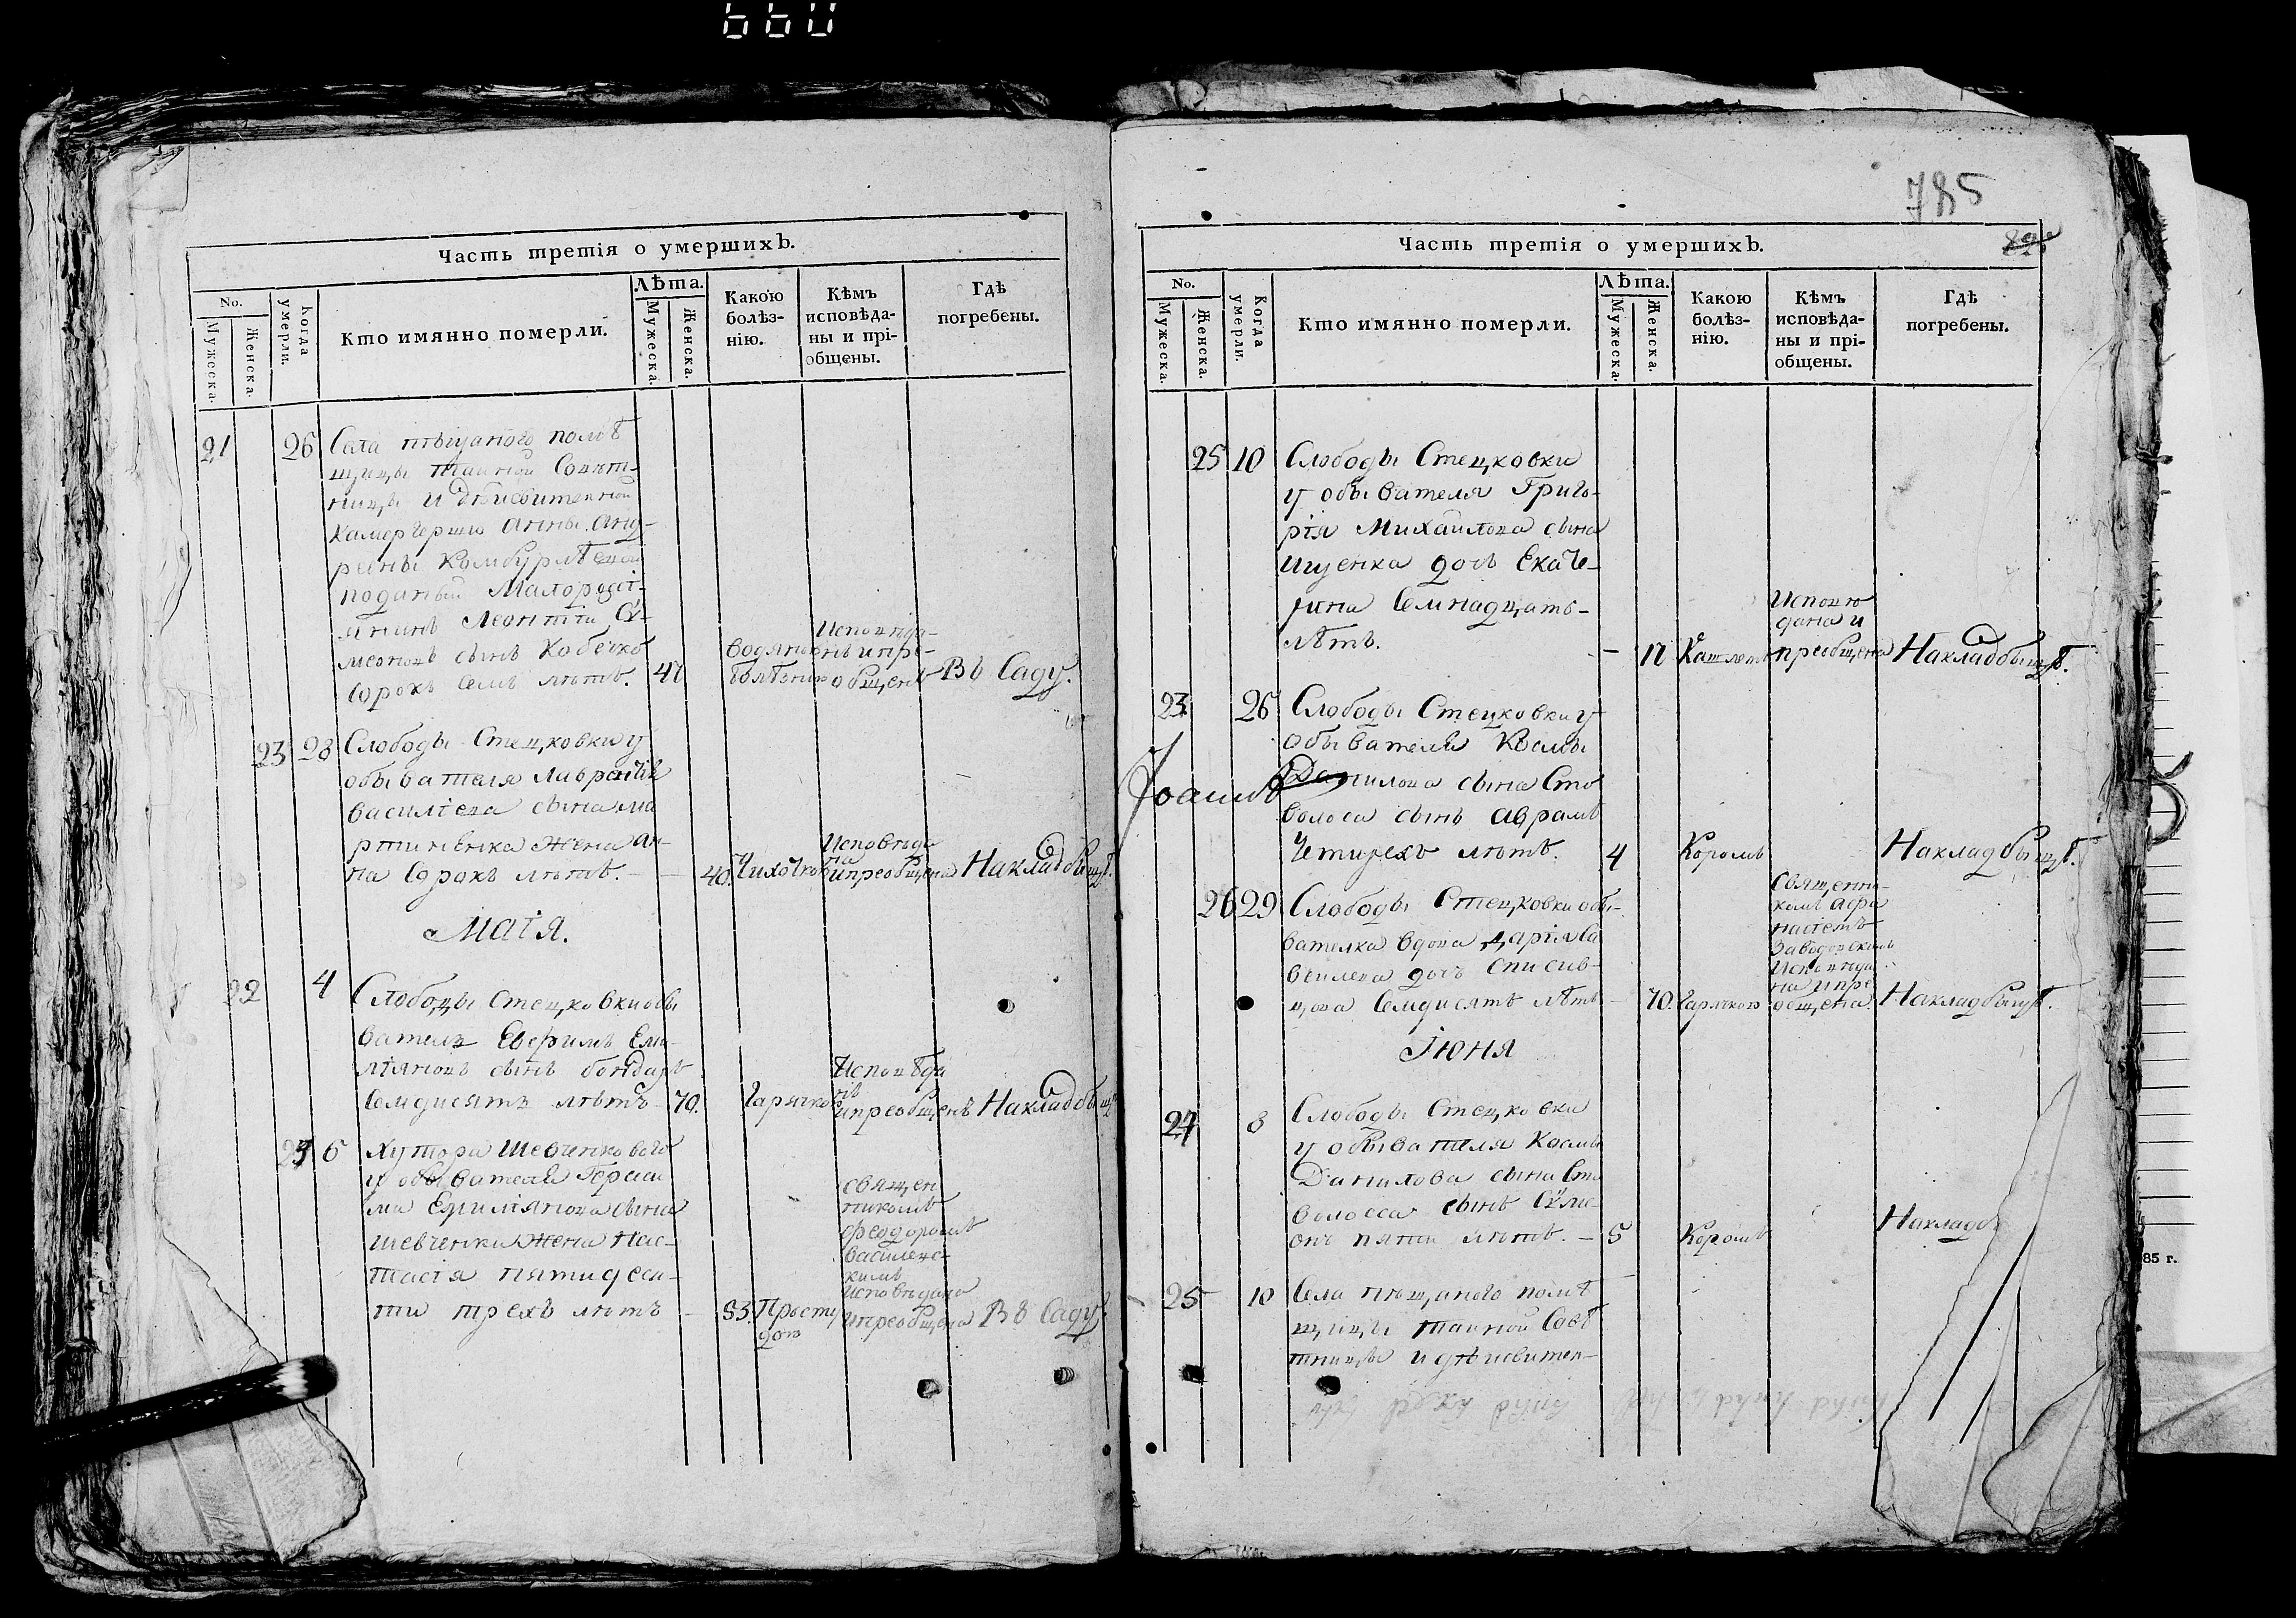 660
Часть третія о умершихъ.
No.
Мужеска.
Женска.
Когда умерли.
Кто имянно померли.
Лѣта.
Мужеска.
Женска.
Какою
болѣз-
нію.
Кѣмъ
исповѣда-
ны и прі-
общены.
Гдѣ
погребены.
21 26 Села пѣщаного помѣ
щицы тайной Совѣт-
ницы и дѣйсвителной
камергерши Анны Анд-
реины Комбурлѣевой
поданый Малоросіі-
янинъ Леонтій Сѵ-
меоновъ сынъ Кобечко
сорокъ семъ лѣтъ. 47
водяною
болѣзнию
Исповѣда-
нъ и прі-
общенъ
Въ Саду.
23 28 Слободы Стецковки у
обывателя Лаврентія
василіева сына ма
ртиненка жена Ан-
на сорокъ лѣтъ. — 40.
Чихоткою
Исповѣда
на
и преобщена
На кладбищѣ.
Маія.
22 4 Слободы Стецковки обы
ватель Евфимъ Еми-
ліяновъ сынъ бондарь
семдисятъ лѣтъ 70.
Гарячкою
Исповѣда
нъ
и преобщенъ
На кладбищ
24 6 Хутора Шевченкового
у обывателя Гераси
ма Емиліянова сына
шевченка жена Нас-
тасія пятидеся-
ти трехъ лѣтъ — 53.
Просту
дою
священ
никомъ
Феодоромъ
василевс-
кимъ
исповѣдана
и преобщена
Въ Саду
785
Часть третія о умершихъ.
No.
Мужеска.
Женска.
Когда умерли.
Кто имянно померли.
Лѣта.
Мужеска.
Женска.
Какою
болѣз-
нію.
Кѣмъ
исповѣда-
ны и прі-
общены.
Гдѣ
погребены.
25 10 Слободы Стецковки
у обывателя Григо-
рія Михайлова сына
Ищенка дочь Екате-
рина семнадцать-
лѣтъ. — 17
Кашлемъ
Исповѣ
дана и
преобщена
На кладбищѣ.
23 26 Слободы Стецковки у
обывателя Космы
Іоаннъ Данилова сына Сто
волоса сынъ Аврамъ
Четирехъ лѣтъ. 4
Коромъ
На кладбищѣ.
26 29 Слободы Стецковки обы-
вателка вдова Дарія Са
веилева дочь Списив-
цова семдисятъ лѣтъ — 70.
Гарячкою
Священни-
комъ Афа
насіемъ
Заводовскимъ
Исповѣда
на и пре
общена.
На кладбищѣ.
Іюня
24 3 Слободы Стецковки
у обывателя Космы
Данилова сына Сто
волосса сынъ Сѵме-
онъ пяти лѣтъ. — 5
Коромъ
На кладб
25 10 Села пѣщаного помѣ
щицы тайной Совѣ
тницы и дѣйсвител-
85 г.